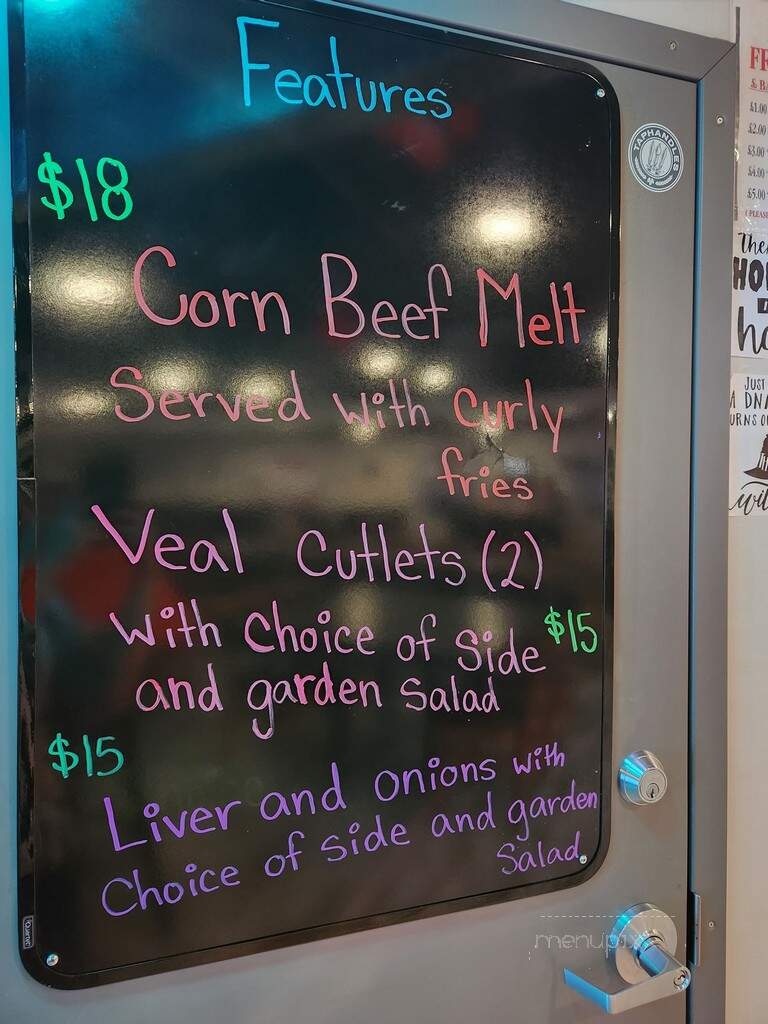 Features
$18
Corn Beef Melt
Served with curly
fries
Veal Cutlets (2)
with choice of side $15
and garden salad
$15
Liver and onions with
Choice of side and garden
Salad
TAPHANDLES
FR
& BA
$1.00
$2.00
$3.00
$4.00
$5.00
HO
JUST
A DNA
URNS O
menupix
Quartet